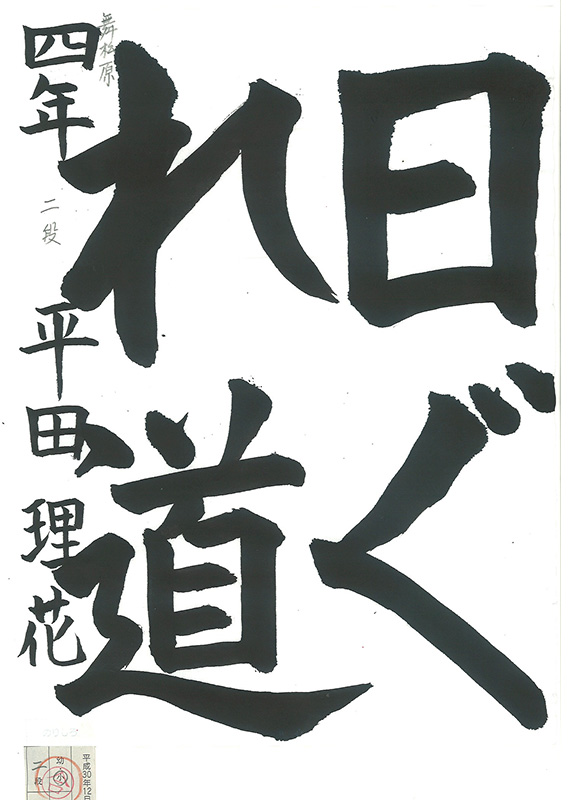 日ぐ
れ道
舞松原
四年 二段 平田理花
平成30年12
幼小
二段